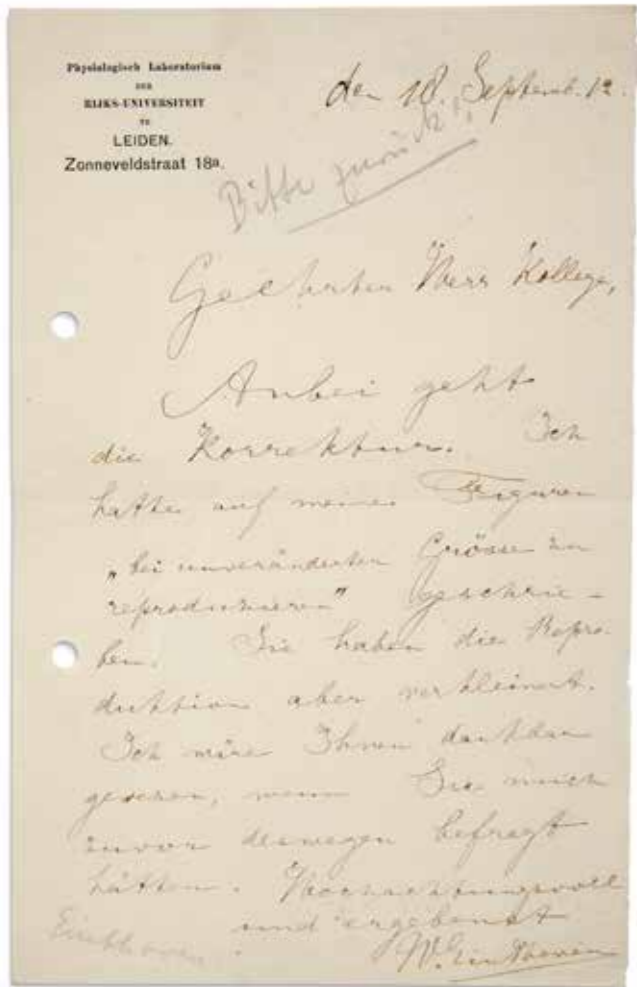 Physiologisch Laboratorium
DER
RIJKS-UNIVERSITEIT
TE
LEIDEN.
Zonneveldstraat 18a.
den 18. Septemb. 12.
Bitte zurück!
Geehrter Herr Kollege,
Anbei geht
die Korrektur. Ich
hatte auf meine Figuren
„bei unveränderter Grösse zu
reproduzieren" geschrie-
ben. Sie haben die Repro-
duktion aber verkleinert.
Ich wäre Ihnen dankbar
gewesen, wenn Sie mich
zuvor deswegen befragt
hätten. Hochachtungsvoll
und ergebenst
W. Einthoven
Einthoven